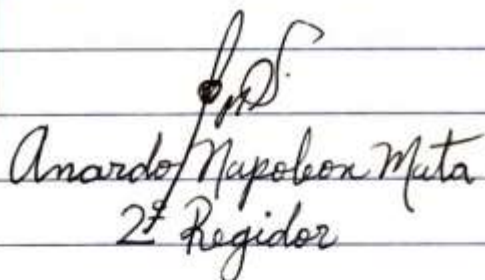 Anardo Napoleon Mata
2º Regidor